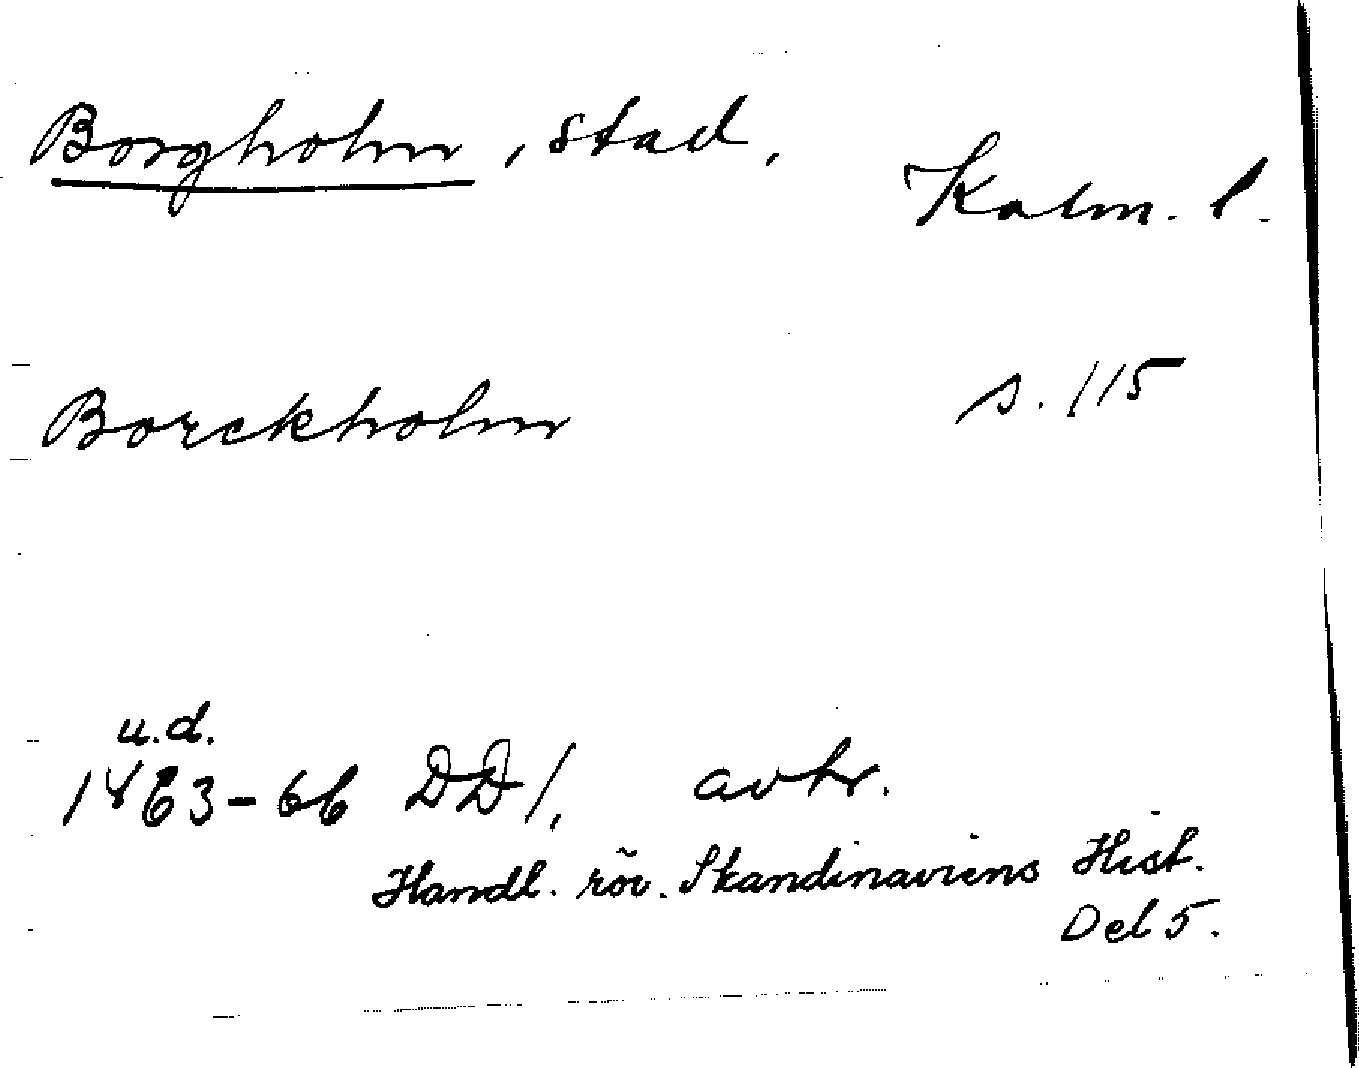 Borgholm, stad,
Kalm. l.
Borckholm s. 115
u.d.
1463-66 DD 1, avtr.
Handl. rör. Skandinaviens Hist.
Del 5.